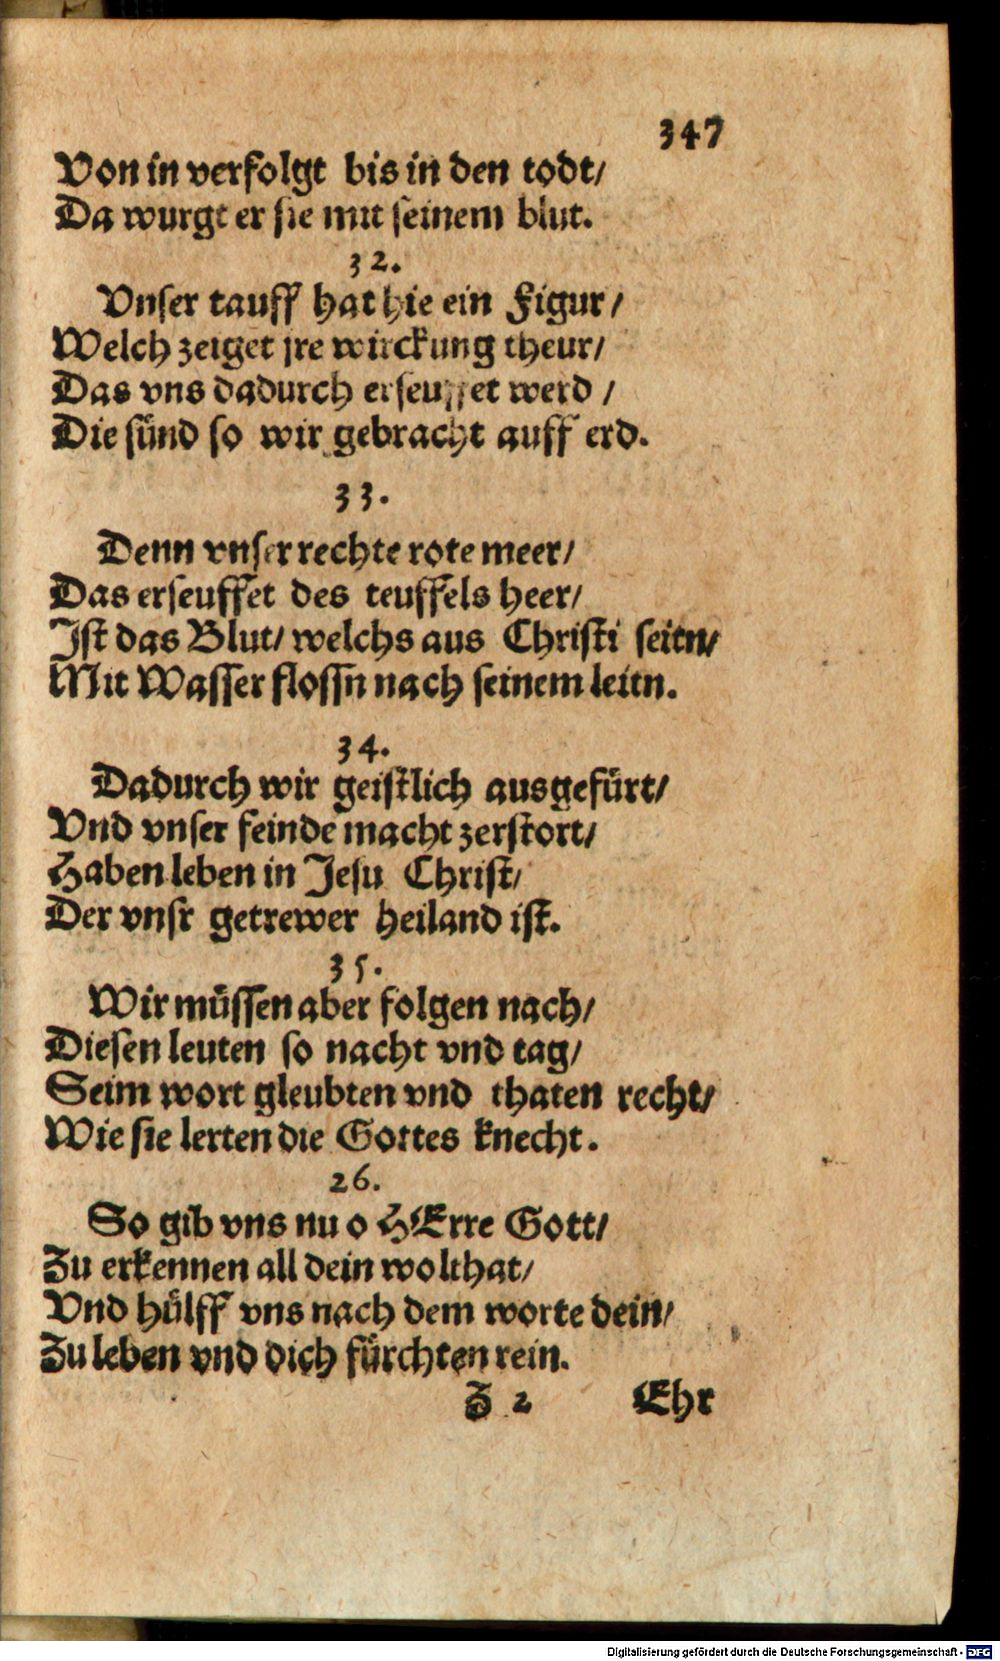 347
Von in verfolgt bis in den todt/
Da wurgt er sie mit seinem blut.
32.
Vnser tauff hat hie ein Figur/
Welch zeiget jre wirckung theur/
Das vns dadurch erseuffet werd /
Die sünd so wir gebracht auff erd.
33.
Denn vnser rechte rote meer/
Das erseuffet des teuffels heer/
Ist das Blut/ welchs aus Christi seitn/
Mit Wasser flossn nach seinem leitn.
34.
Dadurch wir geistlich ausgefürt/
Vnd vnser feinde macht zerstort/
Haben leben in Jesu Christ/
Der vnsr getrewer heiland ist.
35.
Wir müssen aber folgen nach/
Diesen leuten so nacht vnd tag/
Seim wort gleubten vnd thaten recht/
Wie sie lerten die Gottes knecht.
26.
So gib vns nu o HErre Gott/
Zu erkennen all dein wolthat/
Vnd hülff vns nach dem worte dein/
Zu leben vnd dich fürchten rein.
Z 2 Ehr
Digitalisierung gefördert durch die Deutsche Forschungsgemeinschaft - DFG